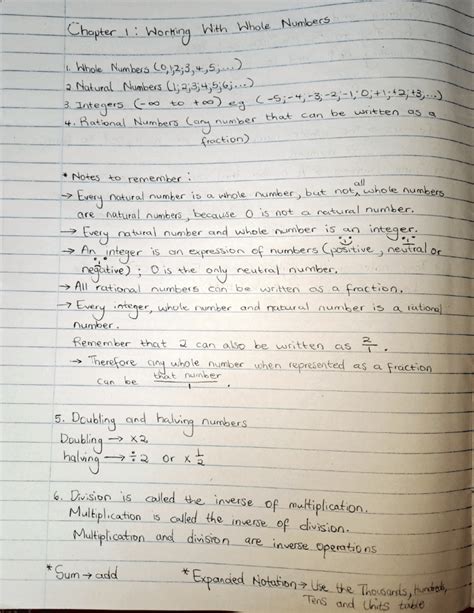 Chapter 1: Working With Whole Numbers
1. Whole Numbers (0,1;2;3,4,5;...)
2. Natural Numbers (1;2;3;4;5;6;...)
3. Integers (-∞ to +∞) eg (-5;-4;-3,-2;-1;0;+1;+2;+3,...)
4. Rational Numbers (any number that can be written as a
fraction)
* Notes to remember:
→ Every natural number is a whole number, but not all whole numbers
are natural numbers, because 0 is not a natural number.
→ Every natural and whole number is an integer.
→ An integer is an expression of numbers (positive, neutral or
negative); 0 is the only neutral number.
→ All rational numbers can be written as a fraction.
→ Every integer, whole number and natural number is a rational
number.
Remember that 2 can also be written as 2/1.
→ Therefore any whole number when represented as a fraction
can be that number/1.
5. Doubling and halving numbers
Doubling → x2
halving → ÷2 or x 1/2
6. Division is called the inverse of multiplication.
Multiplication is called the inverse of division.
Multiplication and division are inverse operations
* Sum → add
* Expanded Notation → Use the Thousands, Hundreds,
Tens and Units table